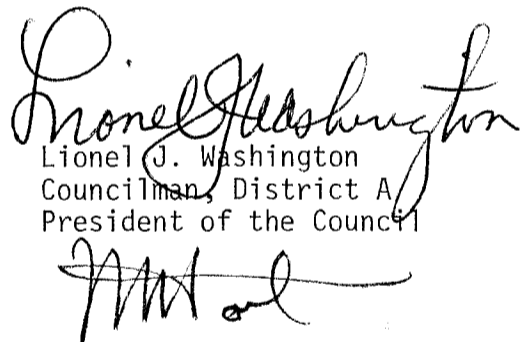 Lionel J Washington
Lionel J. Washington
Councilman, District A
President of the Council